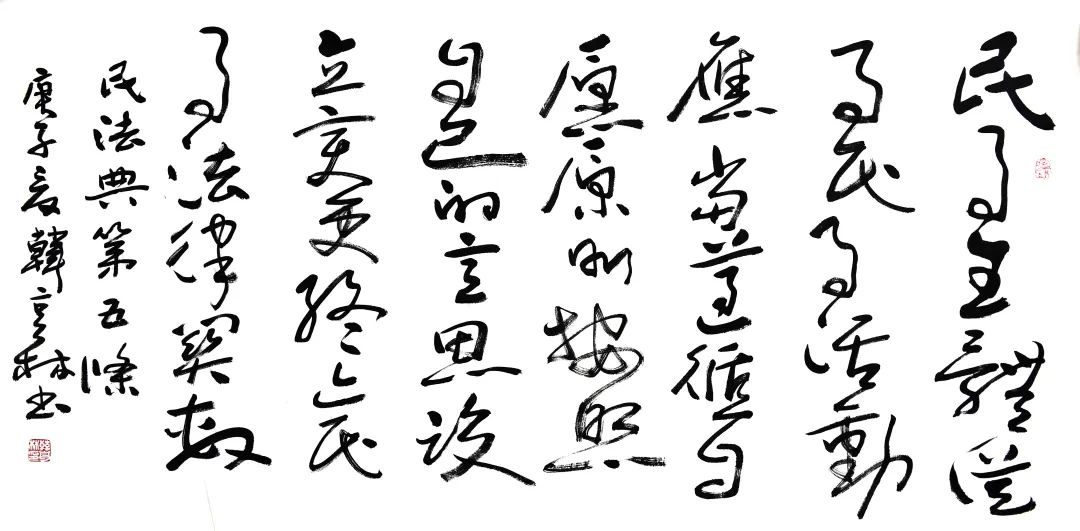 民事主體從
事民事活動
應當遵循自
愿原則按照
自己的意思設
立变更終止民
事法律
民法典第五條
庚子夏韓亨林书